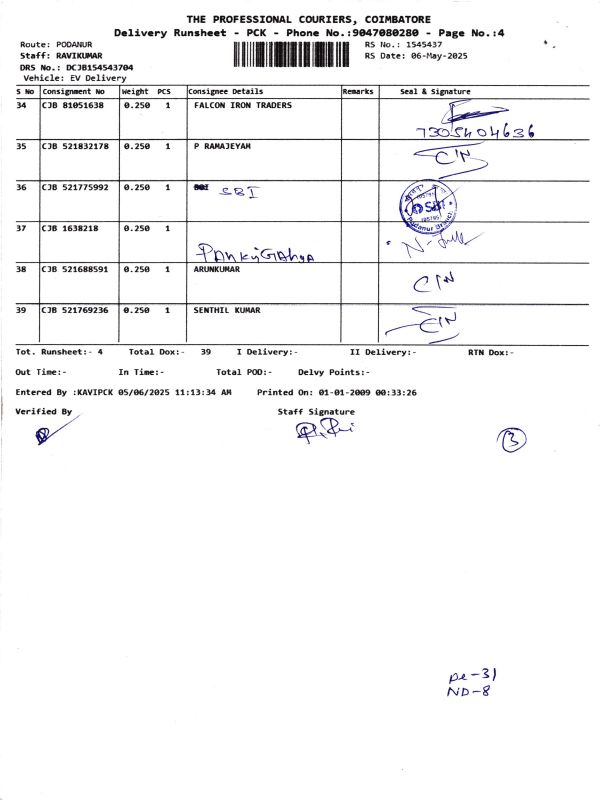 THE PROFESSIONAL COURIERS, COIMBATORE
Delivery Runsheet - PCK - Phone No.:9047080280 - Page No.:4
Route: PODANUR RS No.: 1545437
Staff: RAVIKUMAR RS Date: 06-May-2025
DRS No.: DCJB154543704
Vehicle: EV Delivery
S No Consignment No Weight PCS Consignee Details Remarks Seal & Signature
34 CJB 81051638 0.250 1 FALCON IRON TRADERS
7305404636
35 CJB 521832178 0.250 1 P RAMAJEYAM CIN
36 CJB 521775992 0.250 1 SBI SBI
Podanur Branch
37 CJB 1638218 0.250 1
38 CJB 521688591 0.250 1 ARUNKUMAR CIN
39 CJB 521769236 0.250 1 SENTHIL KUMAR CIN
Tot. Runsheet:- 4 Total Dox:- 39 I Delivery:- II Delivery:- RTN Dox:-
Out Time:- In Time:- Total POD:- Delvy Points:-
Entered By :KAVIPCK 05/06/2025 11:13:34 AM Printed On: 01-01-2009 00:33:26
Verified By Staff Signature
3
De-31
ND-8